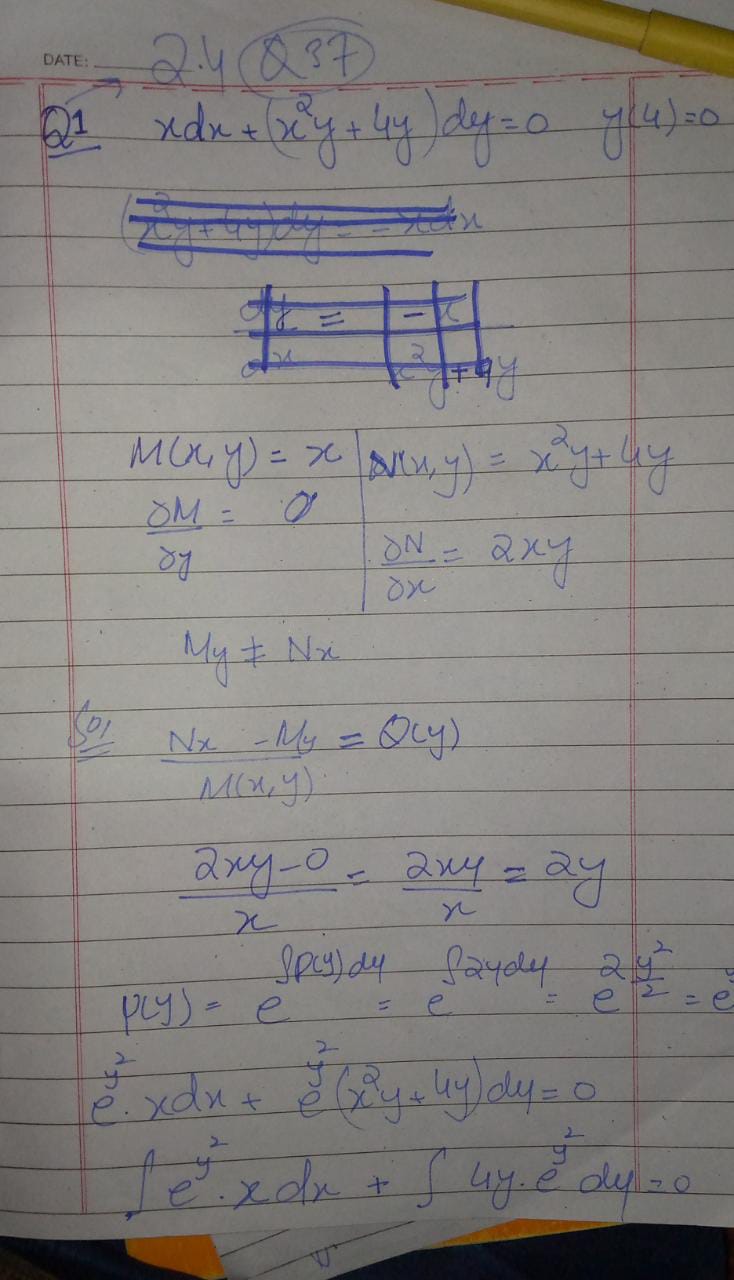 DATE: 2.4 Q37
Q1 xdx + (x²y + 4y) dy = 0 y(4) = 0
(x²y + 4y) dy = - xdx
dy/dx = -x/(x²y + 4y)
M(x,y) = x | N(x,y) = x²y + 4y
∂M/∂y = 0 | ∂N/∂x = 2xy
My ≠ Nx
Sol (Nx - My)/M(x,y) = Q(y)
(2xy - 0)/x = 2xy/x = 2y
μ(y) = e^∫P(y)dy = e^∫2ydy = e^(2y²/2) = e^y
e^y² . xdx + e^y² (x²y + 4y) dy = 0
∫ e^y² . x dx + ∫ 4y . e^y² dy = 0